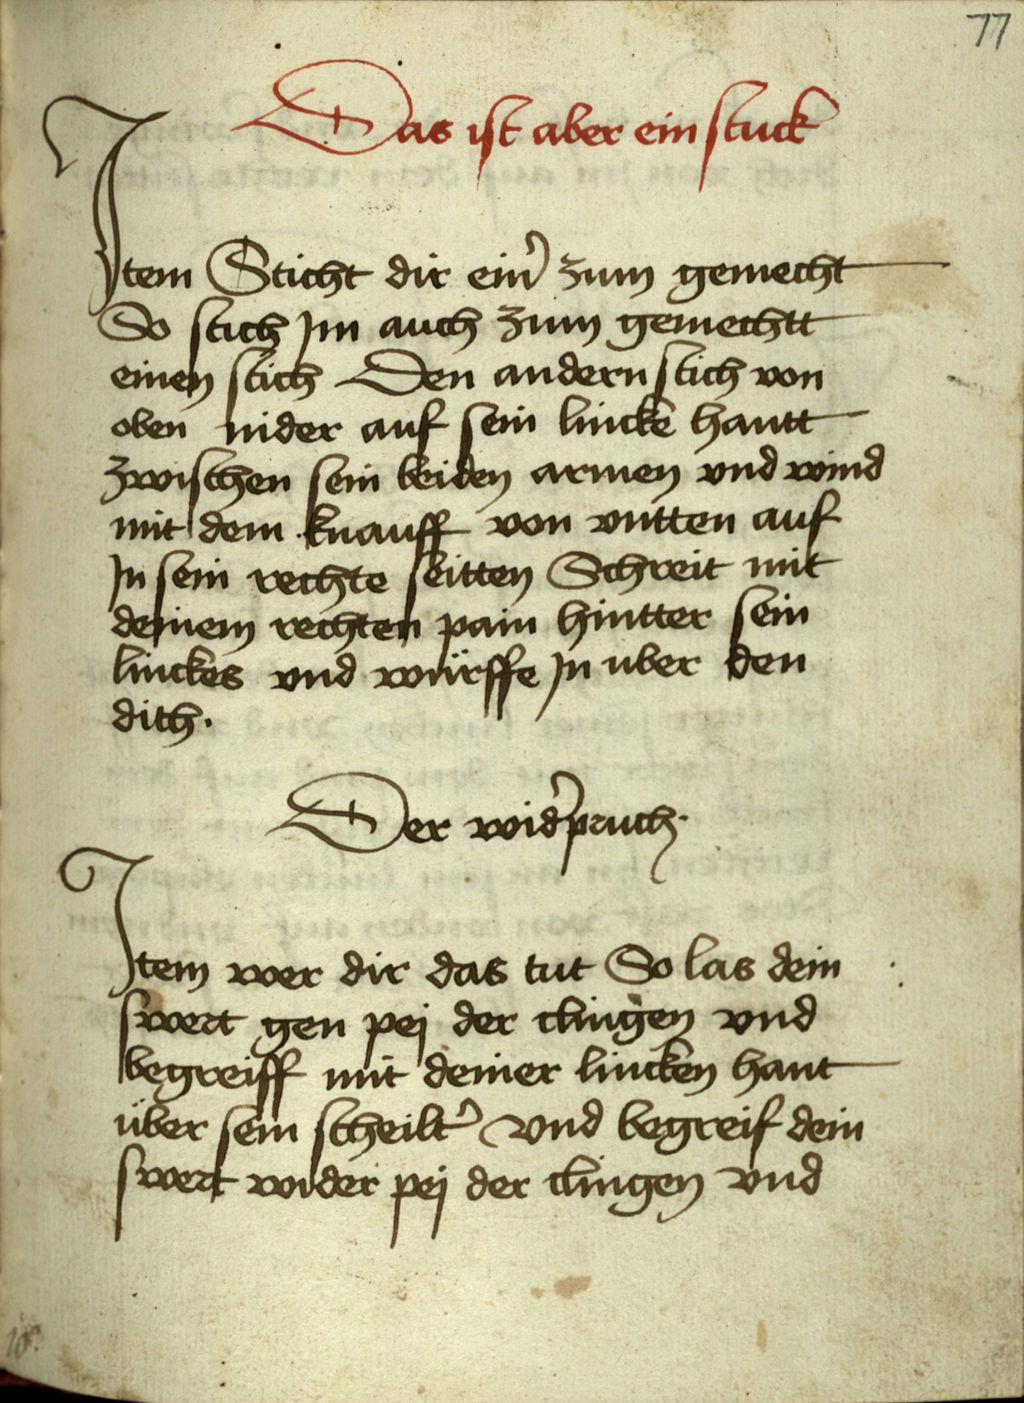 77
Das ist aber ein stuck
Item Sticht dir ein' zum gemecht
So stich Im auch zum gemechtt
einen stich Den andern stich von
oben nider auf sein lincke hantt
zwischen sein beiden armen vnd wind
mit dem knauff von vntten auf
In sein rechte seitten Schreit mit
deinem rechten pain hintter sein
linckes vnd würffe In uber den
dich.
Der wid'pruch.
Item wer dir das tut So las dein
swert gen pej der clingen vnd
begreiff mit deiner lincken hant
über sein scheilt' vnd begreif dein
swert wider pej der clingen vnd